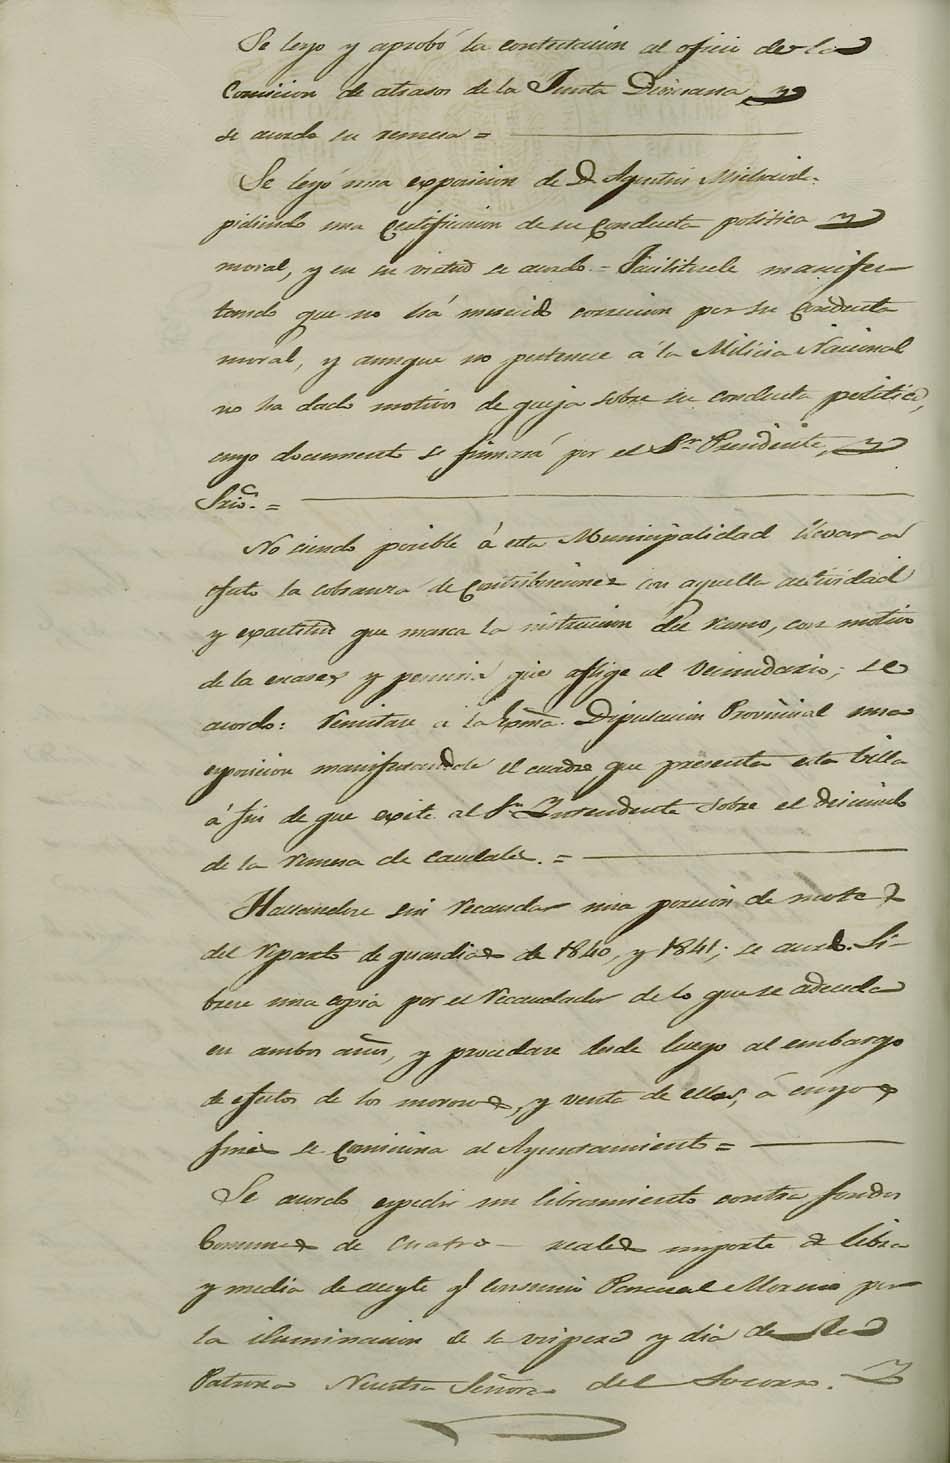 Se leyo y aprobó la contestacion al oficio de la
Comision de atrasos de la Junta Diocesana, y
se acordo su remesa =
Se leyó una exposicion de D. Agustin
pidiendo una Certificacion de su Conducta politica y
moral, y en su virtud se acordo = Facilitarle manifes-
tando que no há merecido correccion por su Conducta
moral, y aunque no pertenece á la Milicia Nacional
no ha dado motivo de queja sobre su conducta politica,
cuyo documento se firmará por el Sr. Presidente, y
Srio. =
No siendo posible á esta Municipalidad llevar a
efecto la cobranza de Contribuciones con aquella actividad
y exactitud que marca la instruccion del ramo, con motivo
de la escasez y penuria que aflige al Vecindario; se
acordo: Remitase á la Exma. Diputacion Provincial una
exposicion manifestandole el cuadro que presenta esta Villa
á fin de que exite al Sr. Intendente sobre el
de la remesa de caudales. =
Hallandose sin recaudar una porcion de
del reparto de guardias de 1840, y 1841; se acordo. Li-
brese una copia por el Recaudador de lo que se adeuda
en ambos años, y procedase desde luego al embargo
de efectos de los morosos, y venta de ellos, á cuyos
fines se comisiona al Ayuntamiento =
Se acordo expedir un libramiento contra fondos
Comunes de Cuatro reales importe de libra
y media de aceyte q. consumió Pascual Moreno por
la iluminacion de la vispera y dia de la
Patrona Nuestra Señora del Socorro.